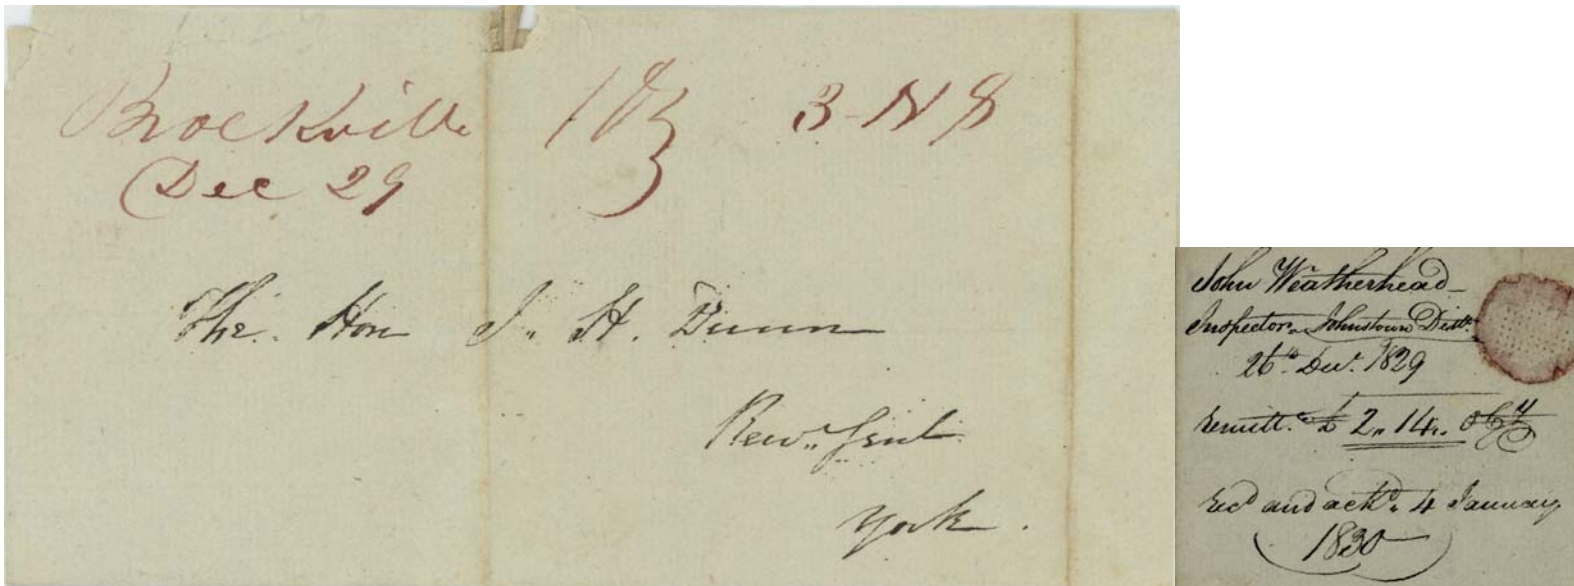 Brockville
Dec 29
3-N8
The. Hon J. H. Dunn
Recr. Genl
York.
John Weatherhead
Inspector Johnstown Distt.
26th Decr. 1829
Remitt. £ 2,, 14,,
Recd and ackd. 4 January
1830